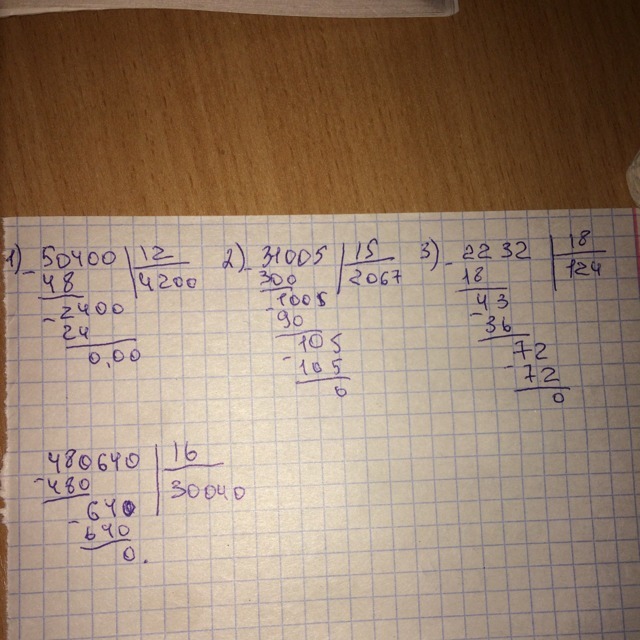 1) 50400 | 12   2) 31005 | 15   3) 2232 | 18
- 48 4200   - 300 2067   - 18 124
- 2400   - 1005   - 43
24   90   36
0,00   - 105   - 72
105   72
0   0
480640 | 16
- 480 30040
- 640
640
0.